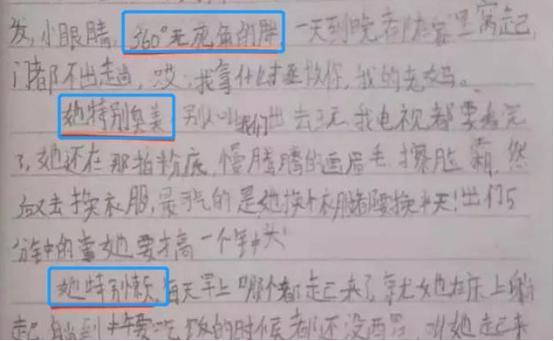 发,小眼睛,360°无死角的胖 一天到晚都在家里窝起,
门都不出走尚,哎,我拿什么才拯救你,我的老妈。
她特别臭美,别人叫我们出去玩我电视都要看完
了,她还在那拍粉底,慢腾腾的画眉毛,擦脸霜,然
后又去换衣服,最气的是她换个衣服都要换半天!出门5
分钟的事她要才高一个钟头!
她特别懒,每天早上哪个都起来了,就尤她在床上躺
起,躺到中午要吃饭的时候都还没洒,叫她起来